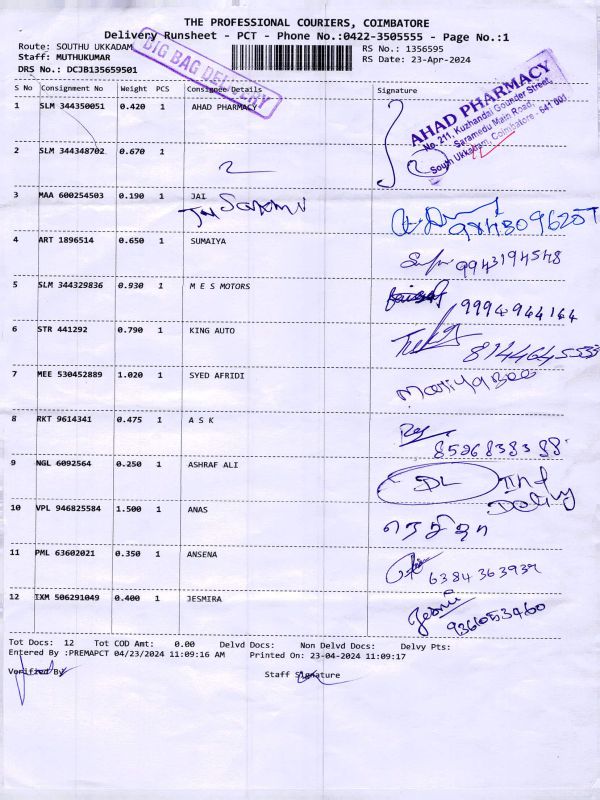 THE PROFESSIONAL COURIERS, COIMBATORE
Delivery Runsheet - PCT - Phone No.:0422-3505555 - Page No.:1
Route: SOUTHU UKKADAM
RS No.: 1356595
Staff: MUTHUKUMAR
RS Date: 23-Apr-2024
DRS No.: DCJB135659501
BIG BAG DELIVERY
S No Consignment No Weight PCS Consignee Details Signature
1 SLM 344350051 0.420 1 AHAD PHARMACY
AHAD PHARMACY
No. 211, Kuzhandai Gounder Street,
Saramedu Main Road,
South Ukkadam, Coimbatore - 641 001
2 SLM 344348702 0.670 1
3 MAA 600254503 0.190 1 JAI
4 ART 1896514 0.650 1 SUMAIYA
9943194548
5 SLM 344329836 0.930 1 M E S MOTORS
9994944164
6 STR 441292 0.790 1 KING AUTO
7 MEE 530452889 1.020 1 SYED AFRIDI
8 RKT 9614341 0.475 1 A S K
8526838388
9 NGL 6092564 0.250 1 ASHRAF ALI
DL
10 VPL 946825584 1.500 1 ANAS
11 PML 63602021 0.350 1 ANSENA
12 IXM 506291049 0.400 1 JESMIRA
9366053460
Tot Docs: 12 Tot COD Amt: 0.00 Delvd Docs: Non Delvd Docs: Delvy Pts:
Entered By :PREMAPCT 04/23/2024 11:09:16 AM Printed On: 23-04-2024 11:09:17
Verified By
Staff Signature